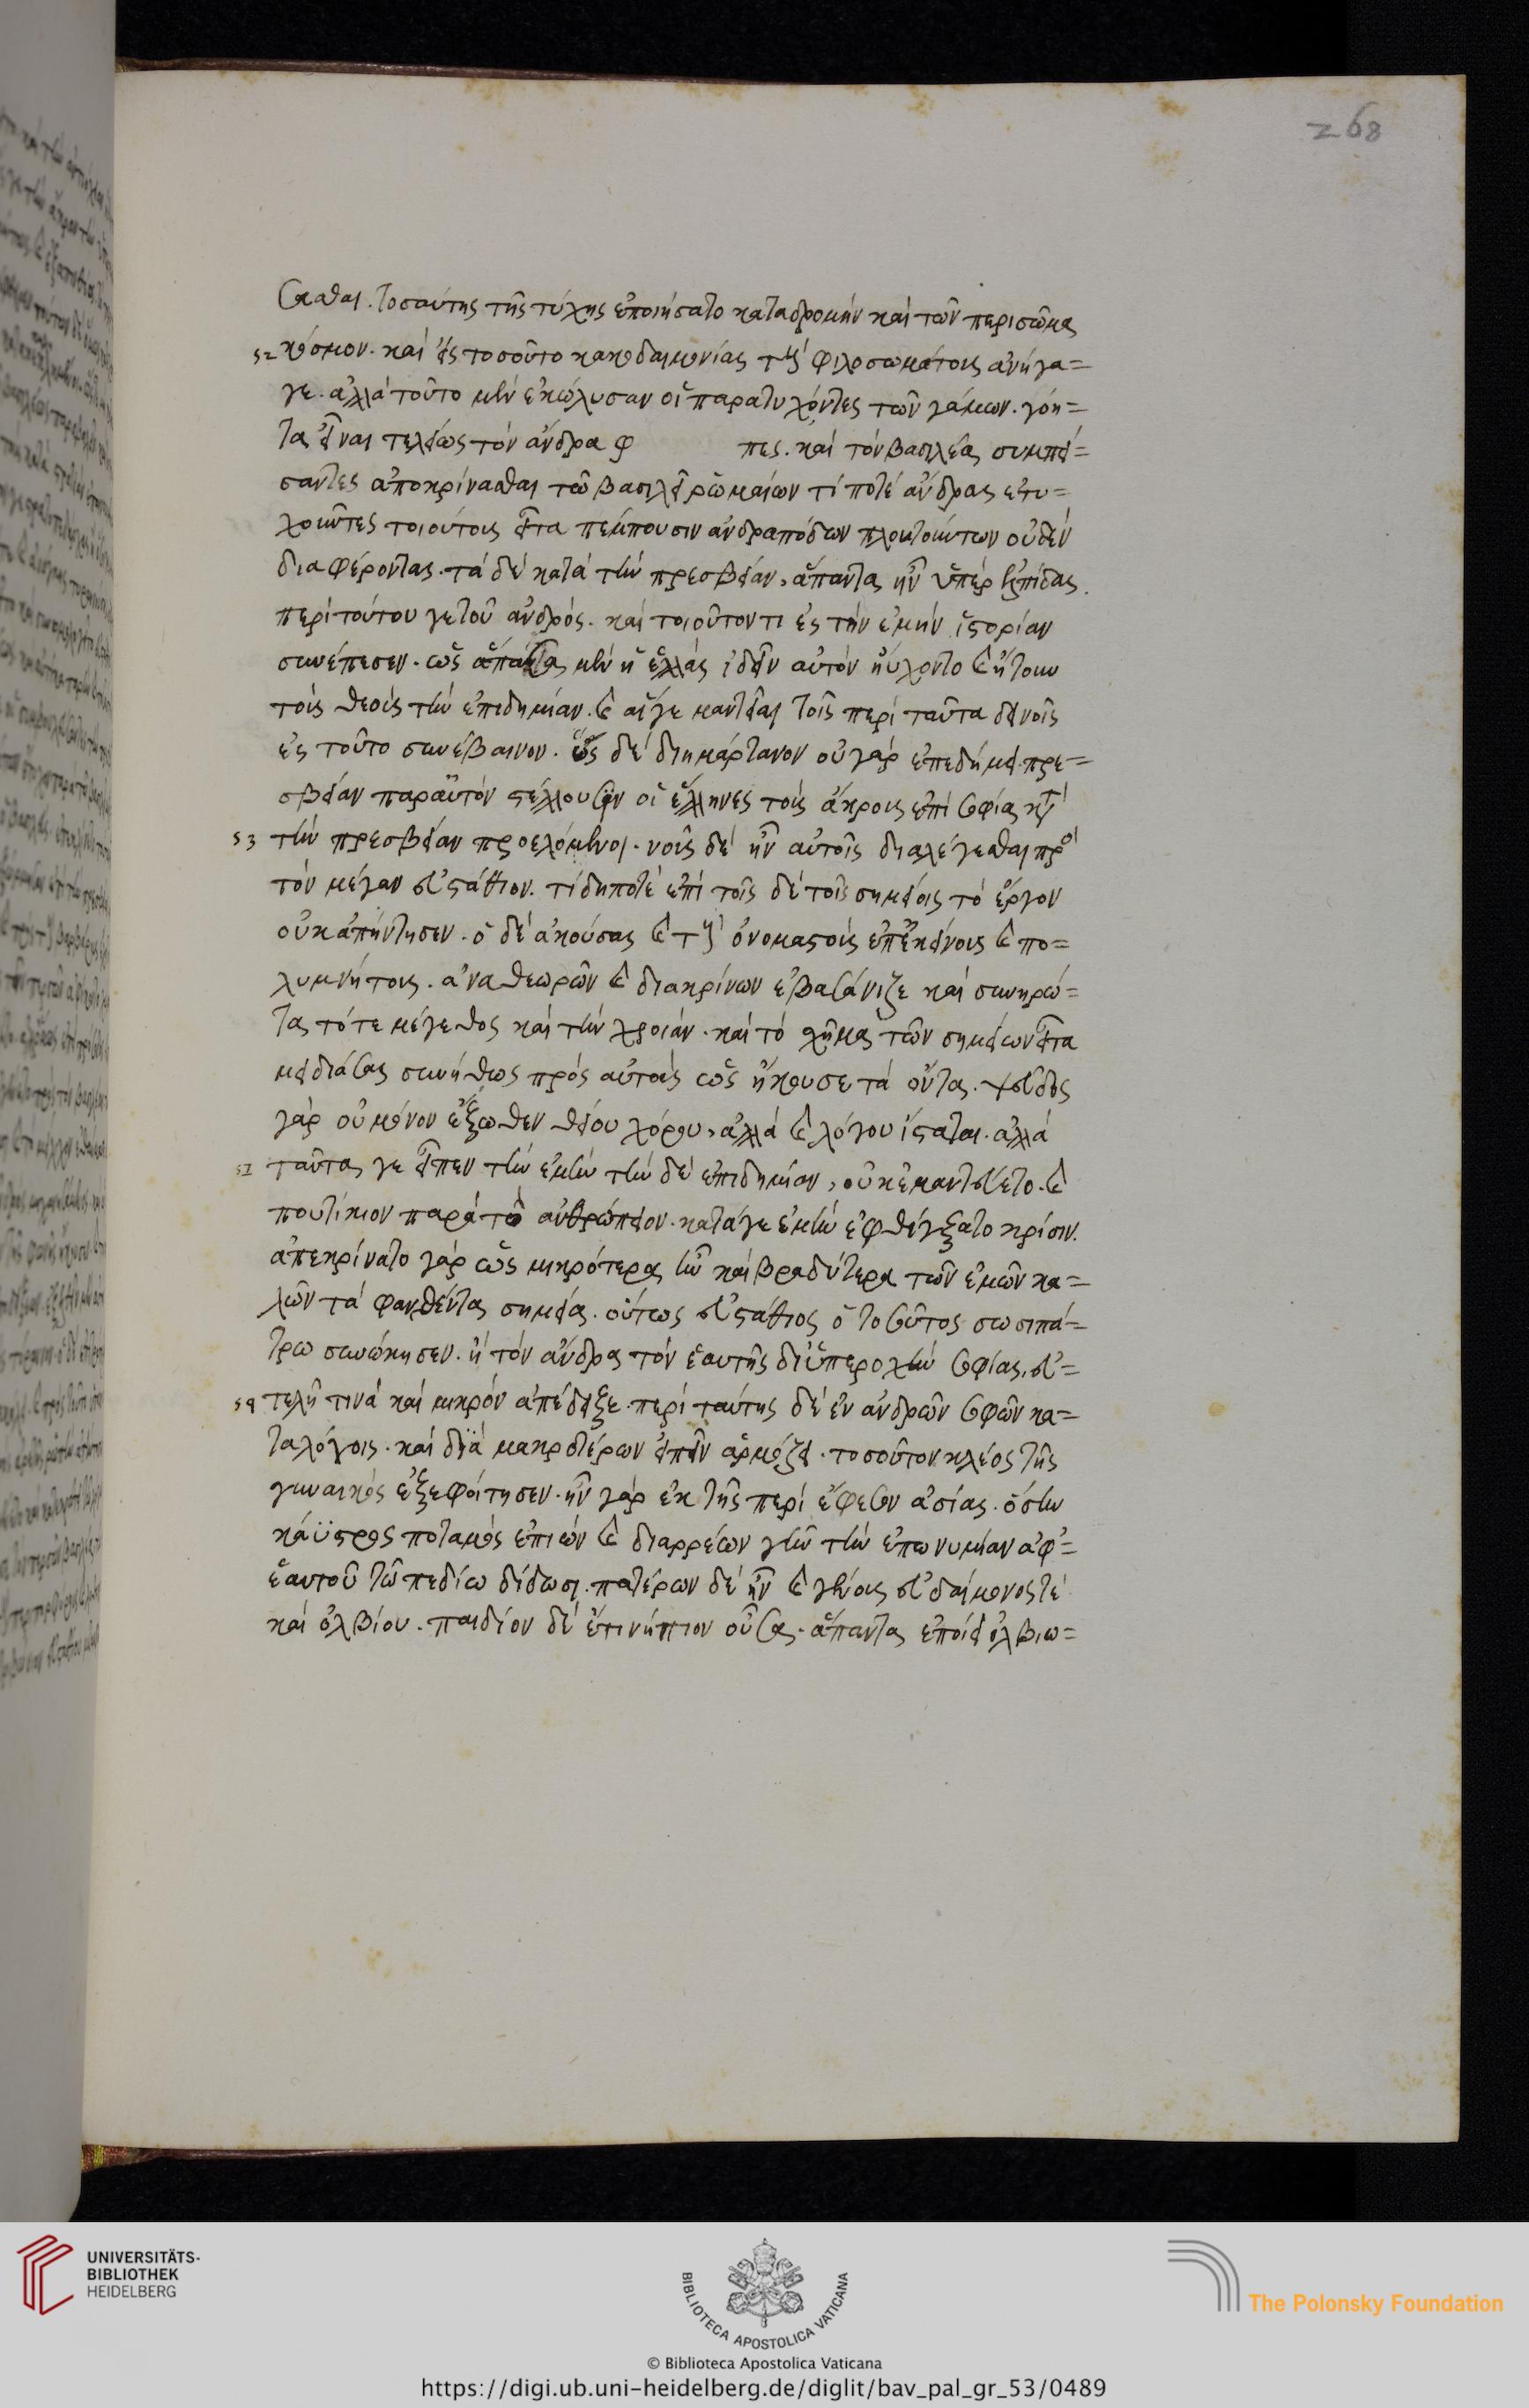 268
σασθαι. τοσαύτης τῆς τύχης ἐποιήσατο καταδρομὴν καὶ τῶν περὶ σῶμα
52 κόσμον. καὶ εἰς τοσοῦτο κακοδαιμονίας τοὺς φιλοσωμάτους ἀνήγα=
γε. ἀλλὰ τοῦτο μὲν ἐκώλυσαν οἱ παρατυχόντες τῶν μάγων. γόη=
τα εἶναι τελείως τὸν ἄνδρα φ πες. καὶ τὸν βασιλέα συμπεί=
σαντες ἀποκρίνασθαι τῶ βασιλεῖ ῥωμαίων τί ποτὲ ἄνδρας εὐτυ=
χοῦντες τοιούτους εἶτα πέμπουσιν ἀνδραπόδων πλουτούντων οὐδὲν
διαφέροντας. τὰ δὲ κατὰ τὴν πρεσβείαν, ἅπαντα ἦν ὑπὲρ ἐλπίδας
περὶ τούτου γε τοῦ ἀνδρός. καὶ τοιοῦτον τι ἐς τὴν ἐμὴν ἱστορίαν
συνέπεσεν. ὡς ἅπασα μὲν ἡ ἑλλὰς ἰδεῖν αὐτὸν ηὔχοντο καὶ ᾔτουν
τοὺς θεοὺς τὴν ἐπιδημίαν. καὶ αἵγε μαντεῖαι τοῖς περὶ ταῦτα δεινοῖς
ἐς τοῦτο συνέβαινον. ὡς δὲ διημάρτανον οὐ γὰρ ἐπεδήμει. πρε=
σβείαν παρ' αὐτὸν στέλλουσιν οἱ ἕλληνες τοὺς ἄκρους ἐπὶ σοφία κατὰ
53 τὴν πρεσβείαν προελόμενοι. νοῦς δὲ ἦν αὐτοῖς διαλέγεσθαι πρὸς
τὸν μέγαν εὐστάθιον. τί δήποτε ἐπὶ τοῖς δὲ τοῖς σημείοις τὸ ἔργον
οὐκ ἀπήντησεν. ὁ δὲ ἀκούσας καὶ τοὺς ὀνομαστοὺς ἐπ' ἐκείνοις καὶ πο=
λυμνήτους. ἀναθεωρῶν καὶ διακρίνων ἐβασάνιζε καὶ συνηρώ=
τα τό τε μέγεθος καὶ τὴν χροιάν. καὶ τὸ σχῆμα τῶν σημείων εἶτα
μειδιάσας συνήθως πρὸς αὐτοὺς ὡς ἤκουσε τὰ ὄντα. ψεῦδος
γὰρ οὐ μόνον ἔξωθεν θείου χόρου, ἀλλὰ καὶ λόγου ἵσταται. ἀλλὰ
ταῦτα γε εἶπεν τὴν ἐμὴν τὴν δὲ ἐπιδημίαν, οὐκ ἐμαντεύετο. καὶ
που τί κιον παρὰ τὸ ἀνθρώπειον. κατά γε ἐμὴν ἐφθέγξατο κρίσιν.
ἀπεκρίνατο γὰρ ὡς μικρότερα ἦν καὶ βραδύτερα τῶν ἐμῶν κα=
λῶν τὰ φανθέντα σημεῖα. οὕτως εὐστάθιος ὁ τοσοῦτος σωσιπά=
τρω συνώκησεν. ἣ τὸν ἄνδρα τὸν ἑαυτῆς δι' ὑπεροχὴν σοφίας, εὐ=
54 τελῆ τινὰ καὶ μικρὸν ἀπέδειξε. περὶ ταύτης δὲ ἐν ἀνδρῶν σοφῶν κα=
ταλόγοις. καὶ διὰ μακροτέρων εἰπεῖν ἁρμόζει. τοσοῦτον κλέος τῆς
γυναικὸς ἐξεφοίτησεν. ἦν γὰρ ἐκ τῆς περὶ ἔφεσον ἀσίας. ὅσην
κάϋστρος ποταμὸς ἐπιὼν καὶ διαρρέων γῆν τὴν ἐπωνυμίαν ἀφ'=
ἑαυτοῦ τῶ πεδίω δίδωσι. πατέρων δὲ ἦν καὶ γένους εὐδαίμονός τε
καὶ ὀλβίου. παιδίον δὲ ἔτι νήπιον οὖσα. ἅπαντα ἐποίει ὀλβιω=
UNIVERSITÄTS-
BIBLIOTHEK
HEIDELBERG
BIBLIOTECA APOSTOLICA VATICANA
© Biblioteca Apostolica Vaticana
The Polonsky Foundation
https://digi.ub.uni-heidelberg.de/diglit/bav_pal_gr_53/0489